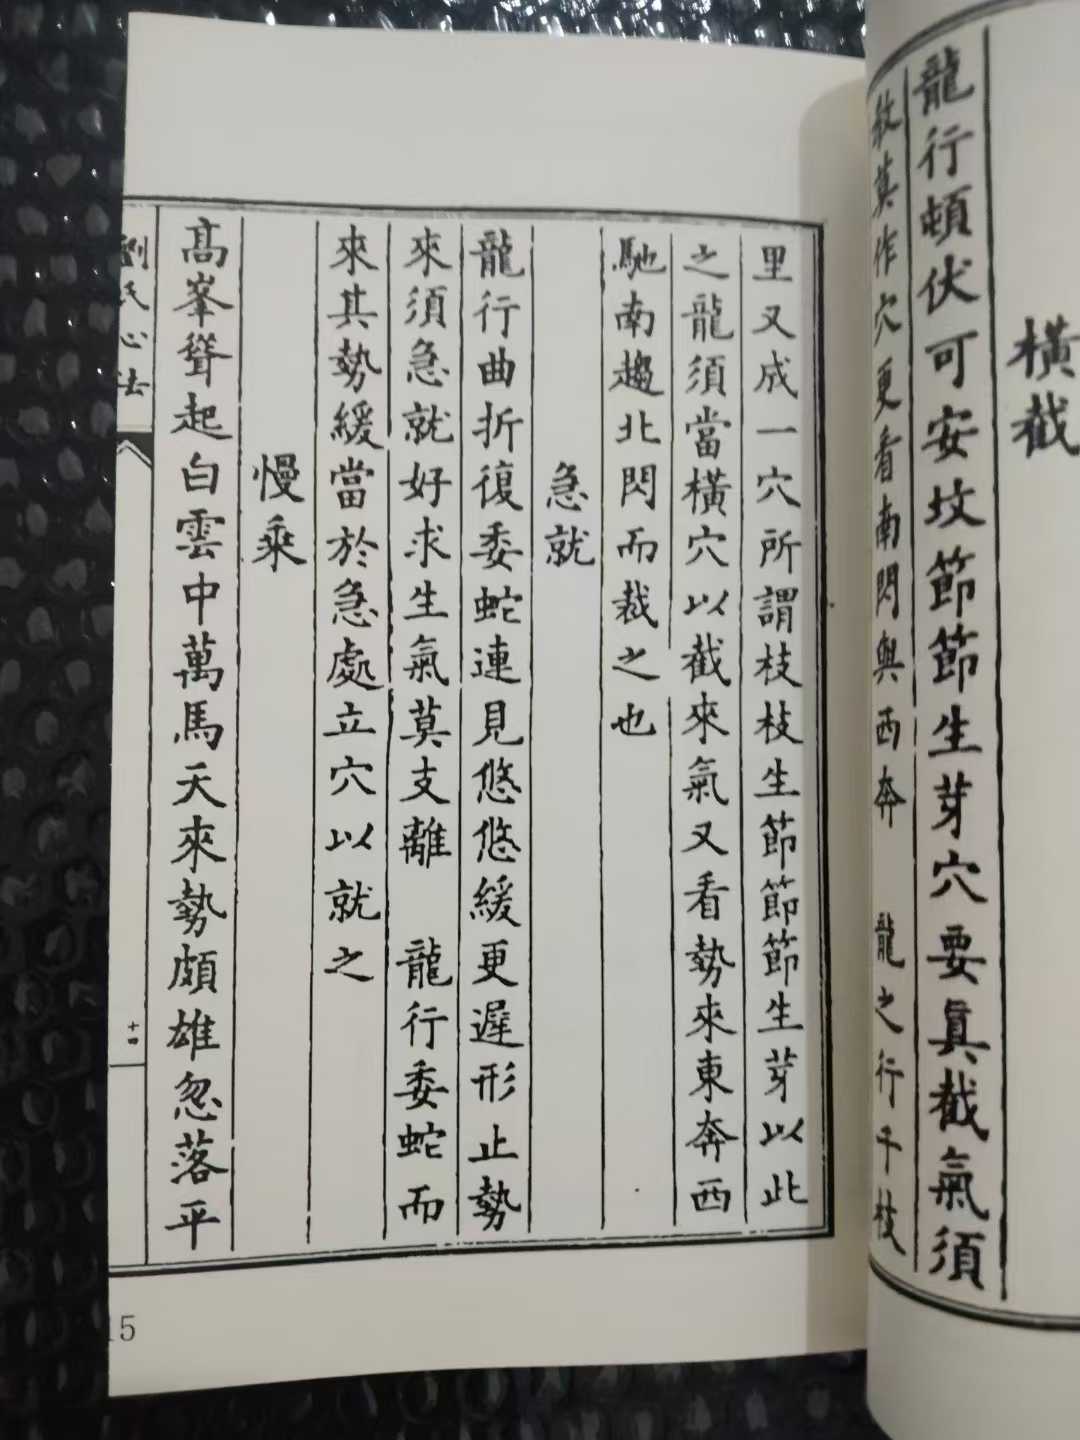 橫截
龍行頓伏可安坟節節生芽穴要眞截氣須
敎莫作穴更看南閃與西奔　龍之行千枝
里又成一穴所謂枝枝生節節節生芽以此
之龍須當橫穴以截來氣又看勢來東奔西
馳南趨北閃而裁之也
急就
龍行曲折復委蛇連見悠悠緩更遲形止勢
來須急就好求生氣莫支離　龍行委蛇而
來其勢緩當於急處立穴以就之
慢乘
高峯聳起白雲中萬馬天來勢頗雄忽落平
劉氏心法
十四
15